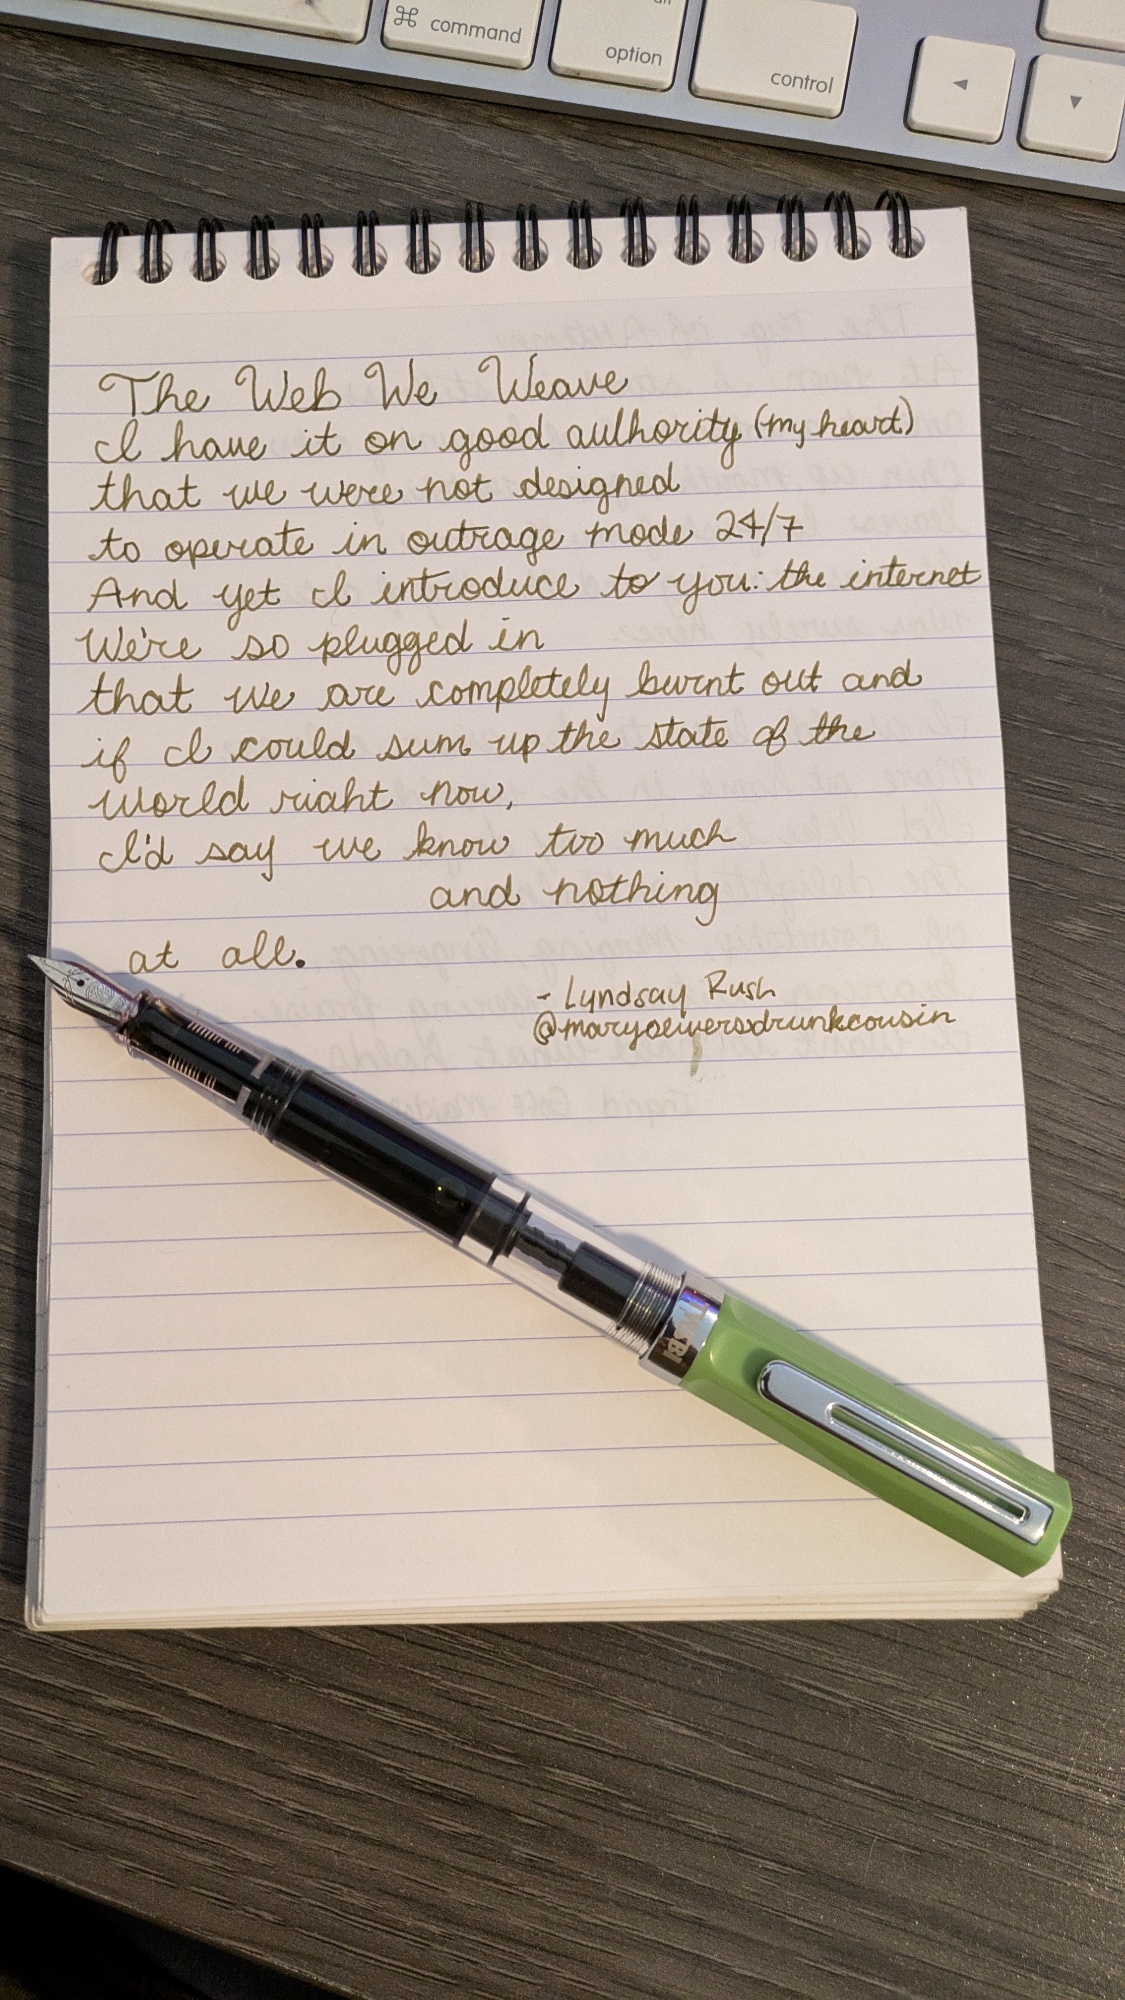 ⌘ command
option
control
◄
▼
The Web We Weave
I have it on good authority (my heart)
that we were not designed
to operate in outrage mode 24/7
And yet I introduce to you: the internet
We're so plugged in
that we are completely burnt out and
if I could sum up the state of the
world right now,
I'd say we know too much
and nothing
at all.
- Lyndsay Rush
@maryoliversdrunkcousin
TWSBI